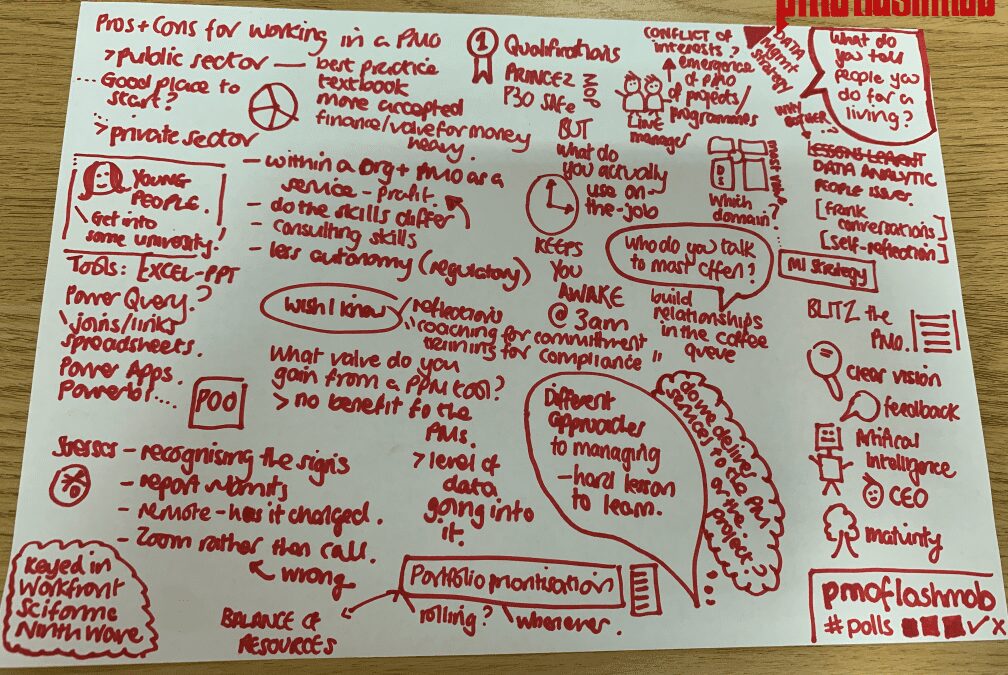 pmoflashmob
Pros + Cons for working in a PMO
> public sector —
best practice
textbook
more accepted
finance/value for money
heavy.
... Good place to
start?
... > private sector
- within a org + PMO as a
service - profit.
- do the skills differ
- consulting skills
- less autonomy (regulatory)
YOUNG
PEOPLE.
Get into
some university!
Tools: EXCEL-PPT
Power Query?
joins/links
spreadsheets.
Power Apps.
Power
POO
wish I knew
reflections
coaching for commitment
training for compliance "
What value do you
gain from a PPM tool?
> no benefit to the
PMs.
> level of
data
going into
it.
Stresses - recognising the signs
- report
- remote - has it changed.
- Zoom rather than call.
wrong
Keyed in
Workfront
Sciforma
Ninth Wave
1
Qualifications
PRINCE2
P3O SAFe
MOP
BUT
What do
you actually
use on
the-job
KEEPS
YOU
AWAKE
@ 3am
CONFLICT OF
interests?
emergence
of PMO
of projects/
programmes
Line
manager
DATA
Mgmt
strategy
What do
you tell
people you
do for a
living?
LESSONS LEARNT
DATA ANALYTIC
PEOPLE ISSUES.
[frank
conversations]
[self-reflection]
Which
domain?
Who do you talk
to most often?
build
relationships
in the coffee
queue
MI Strategy
BLITZ the
PMO.
clear vision
feedback
Artificial
Intelligence
CEO
maturity
Different
approaches
to managing
- hard lesson
to learn.
do we deliver
services to the PM
or the
project?
Portfolio prioritisation
rolling? whenever.
BALANCE OF
RESOURCES
pmoflashmob
#polls ✓ x